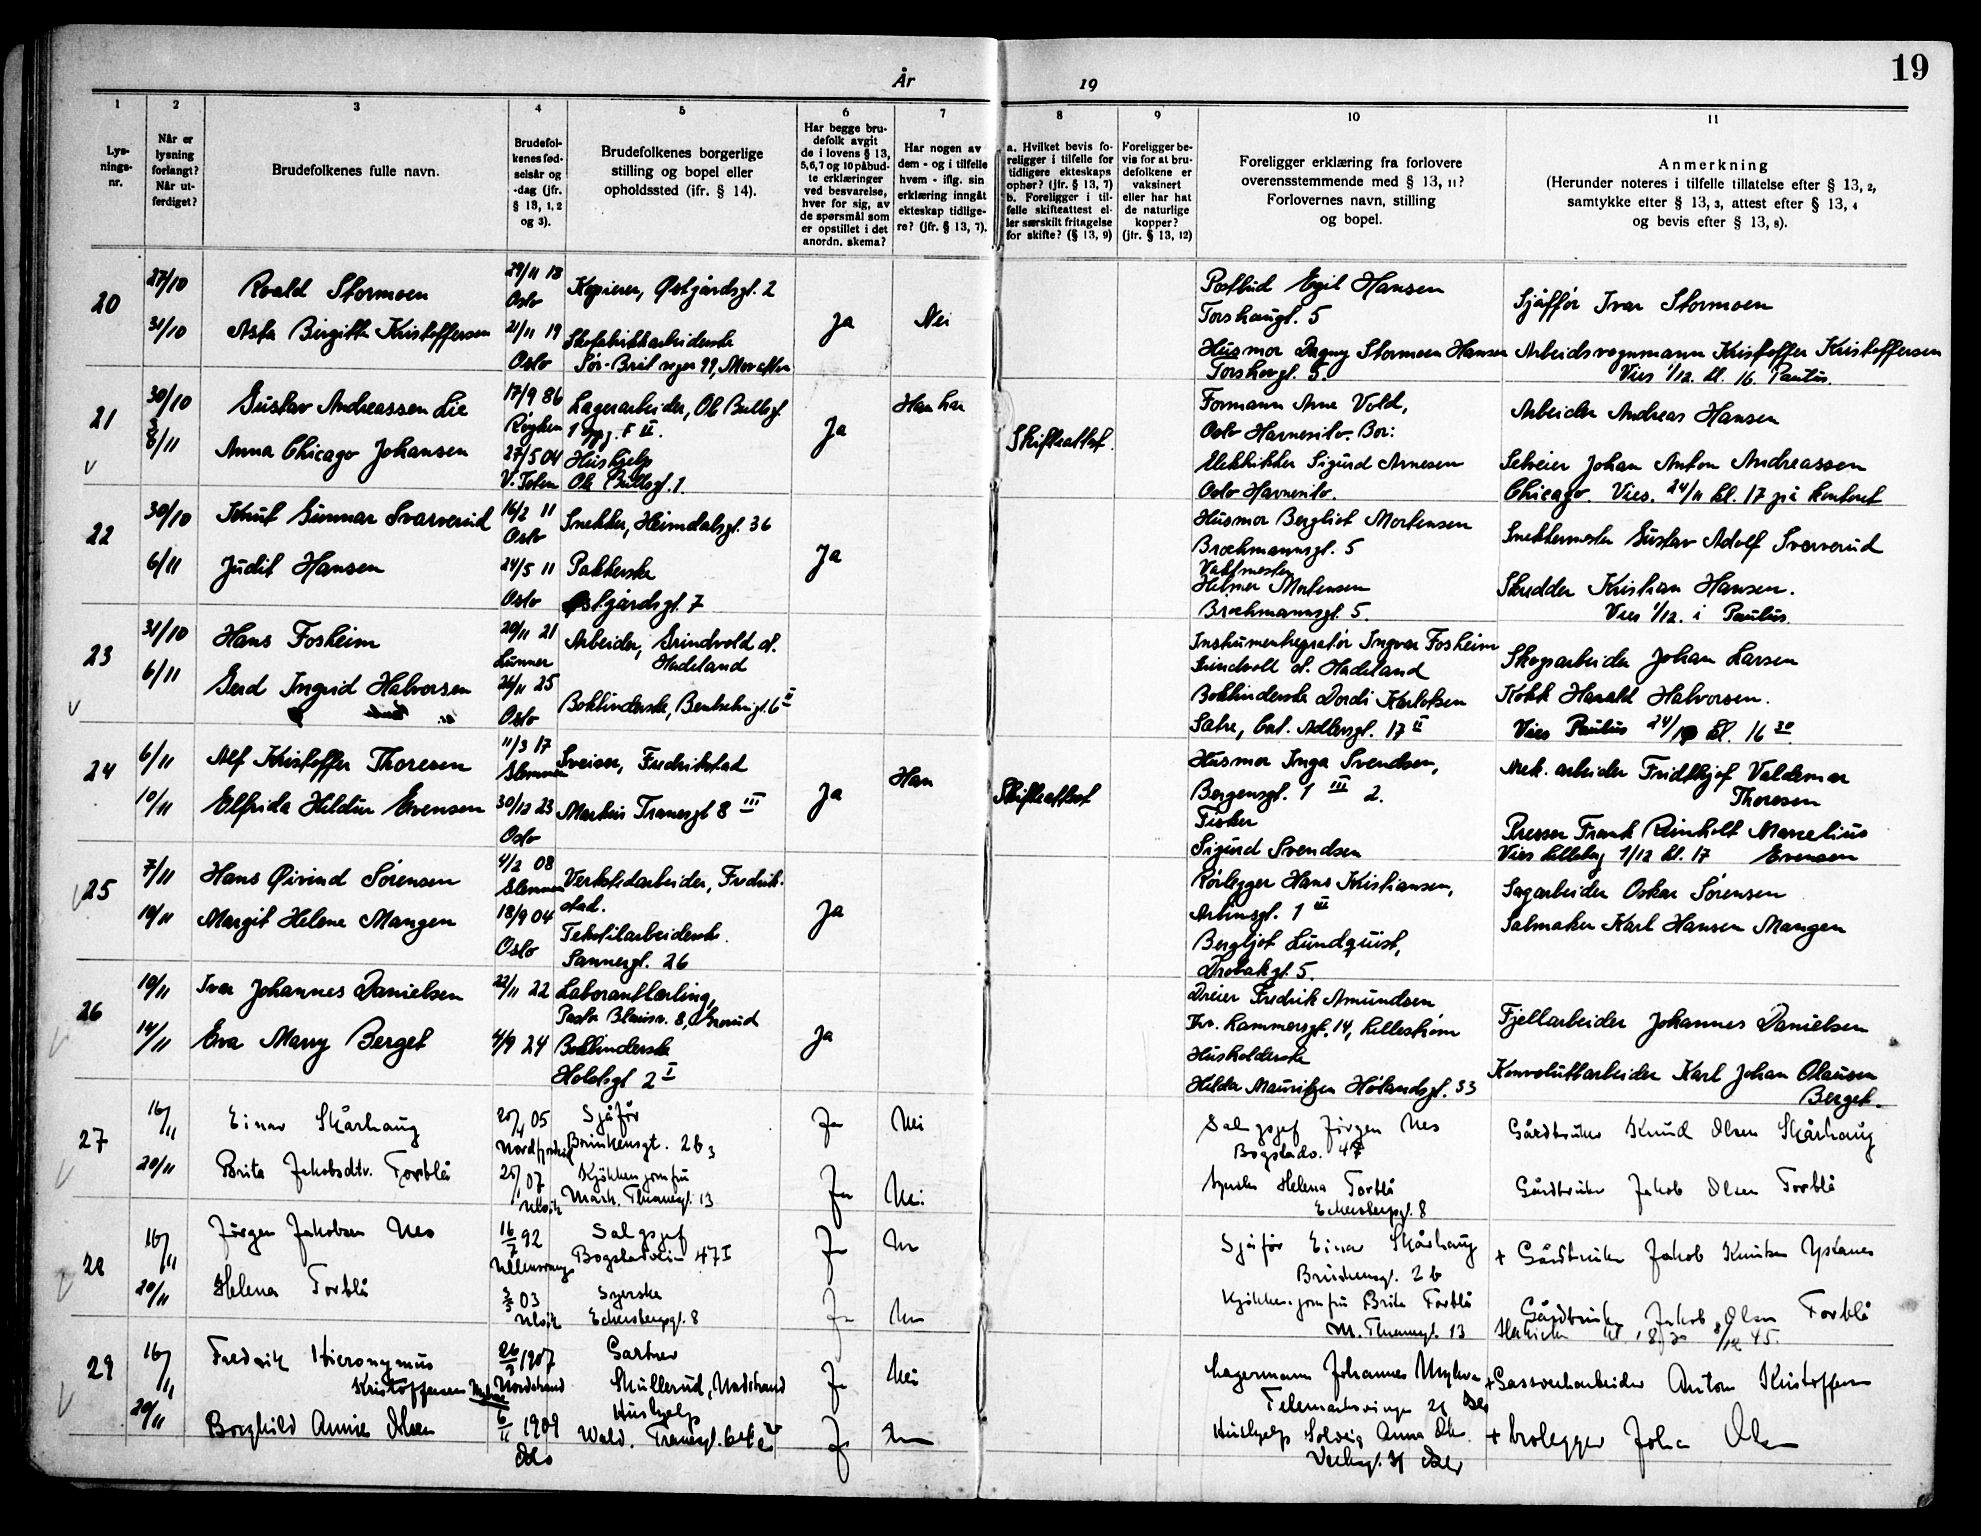 19
År 19
1 2 3 4 5 6 7 8 9 10 11
Lys-
nings-
nr.
Når er
lysning
forlangt?
Når ut-
ferdiget?
Brudefolkenes fulle navn.
Brudefol-
kenes fød-
selsår og
-dag (jfr.
§ 13, 1, 2
og 3).
Brudefolkenes borgerlige
stilling og bopel eller
opholdssted (ifr. § 14).
Har begge bru-
defolk avgit
de i lovens § 13,
5,6,7 og 10 påbud-
te erklæringer
ved besvarelse,
hver for sig, av
de spørsmål som
er opstillet i det
anordn. skema?
Har nogen av
dem - og i tilfelle
hvem - iflg. sin
erklæring inngåt
ekteskap tidlige-
re? (jfr. § 13, 7).
a. Hvilket bevis fo-
religger i tilfelle for
tidligere ekteskaps
ophør? (jfr. § 13, 7)
b. Foreligger i til-
felle skifteattest el-
ler særskilt fritagelse
for skifte? (§ 13, 9)
Foreligger be-
vis for at bru-
defolkene er
vaksinert
eller har hat
de naturlige
kopper?
(jfr. § 13, 12)
Foreligger erklæring fra forlovere
overensstemmende med § 13, 11?
Forlovernes navn, stilling
og bopel.
Anmerkning
(Herunder noteres i tilfelle tillatelse efter § 13, 2,
samtykke efter § 13, 3, attest efter § 13, 4
og bevis efter § 13, 8).
20
27/10
31/10
Roald Stormoen
Asta Birgitte Kristoffersen
29/11 18
Oslo
21/11 19
Oslo
Kopierer, Østgårdsgt. 2
Skofabrikkarbeiderske
Ja
Nei
Postbud Egil Hansen
Torshauggt. 5
Husmor Dagny Stormoen Hansen
Torshovgt. 5.
Sjåffør Ivar Stormoen
Arbeidsvognmann Kristoffer Kristoffersen
Vies 1/12. kl. 16 Paulus.
21
30/10
8/11
Gustav Andreassen Lie
Anna Chicago Johansen
17/9 86
Røyken
27/5 04
V. Toten
Lagerarbeider, Ole Bullsgt
1 opg. F II.
Hushjelp
Ole Bullsgt. 1.
Ja
Han har
Skifteattest.
Formann Arne Vold,
Oslo Havnesilo. Bor:
Elektriker Sigurd Arnesen
Oslo Havnesilo.
Arbeider Andreas Hansen
Selveier Johan Anton Andreassen
Chicago. Vies. 24/11 kl. 17 på kontoret
22
30/10
6/11
Knut Gunnar Svarverud
Judit Hansen
16/2 11
Oslo
24/5 11
Oslo
Snekker, Heimdalsgt. 36
Pakkerske
Østgårdsgt. 7
Ja
Husmor Bergliot Mortensen
Brochmannsgt. 5
Vaktmester
Helmer Mortensen
Brochmannsgt. 5.
Snekkermester Gustav Adolf Svarverud
Skredder Kristian Hansen.
Vies 1/12. i Paulus.
23
31/10
6/11
Hans Fosheim
Gerd Ingrid Halvorsen
20/11 21
Lunner
24/11 25
Oslo
Arbeider, Grindvold st.
Hadeland
Bokbinderske, Bentsebrugt. 6 II
Instrumentregratør Ingvar Fosheim
Grindvoll st. Hadeland
Bokbinderske Dordi Karlotsen
Sætre, Carl Adlersgt. 17 II
Skogsarbeider Johan Larsen
Kokk Harald Halvorsen.
Vies Paulus 24/11 kl. 16 30.
24
6/11
10/11
Alf Kristoffer Thoresen
Elfrida Heldur Evensen
11/3 17
Glemmen
30/12 23
Oslo
Sveiser, Fredrikstad
Markus Tranesgt 8 III
Ja
Han
Skifteattest
Husmor Inga Svendsen,
Bergensgt. 1 III 2.
Fisker
Sigurd Svendsen
Mek. arbeider Fridthjof Valdemar
Thoresen
Presser Frank Reinholt Marcelius
Evensen
Vies Lilleborg 1/12 kl. 17
25
7/11
10/11
Hans Øivind Sørensen
Margit Helene Mangen
4/2 08
Glemmen
18/9 04
Oslo
Verkstedarbeider, Fredrik-
stad.
Tekstilarbeiderske.
Sannergt. 26
Ja
Rørlegger Hans Kristiansen,
Arbinsgt. 1 III
Bergljot Lundquist,
Drøbakgt. 5.
Sagarbeider Oskar Sørensen
Salmaker Karl Hansen Mangen
26
10/11
14/11
Ivar Johannes Danielsen
Eva Mary Berget
22/11 22
4/9 24
Laborantlærling,
Pastor Blauwsv. 8, Grorud
Bokbinderske
Holstsgt 2 I
Ja
Dreier Fredrik Amundsen
Thr. Lammersgt. 14, Lillestrøm
Husholderske
Helda Mauritzen Hølandsgt. 33
Fjellarbeider Johannes Danielsen
Konvoluttarbeider Karl Johan Olausen
Berget.
27
16/11
20/11
Einar Skårhaug
Brita Jakobsdtr. Forblå
05
07
Sjåfør
Kjøkkenjomfru
Mark. Thranesgt. 13
Ja
Nei
Ja
Nei
Salgssjef Jørgen Nes
Bogstadv. 47
Syerske Helena Forblå
Eckersbergsgt. 8
Gårdbruker Knud Olsen Skårhaug
Gårdbruker Jakob Olsen Forblå
28
16/11
20/11
Jørgen Jakobsen Nes
Helena Forblå
16/7 92
Ullensvang
3/5 03
Salgssjef
Bogstadveien 47 I
Syerske
Eckersbergsgt. 8
Ja
Nei
Ja
Nei
Sjåfør Einar Skårhaug
2 b
Kjøkkenjomfru Brita Forblå
M. Thranesgt. 13
+ Gårdbruker Jakob Knutsen Ystanes
Gårdbruker Jakob Olsen Forblå
29
16/11
20/11
Fredrik Hieronymus
Kristoffersen
Borghild Annie Olsen
26/3 1907
Nordstrand
6/11 1909
Oslo
Gartner
Skullerud, Nordstrand
Hushjelp
Ja
Nei
Ja
Nei
Lagermann Johannes Myhre
Hushjelp Solveig Anna Olsen
+ Gassverkarbeider Anton Kristoffersen
+ Brolegger Johan Olsen